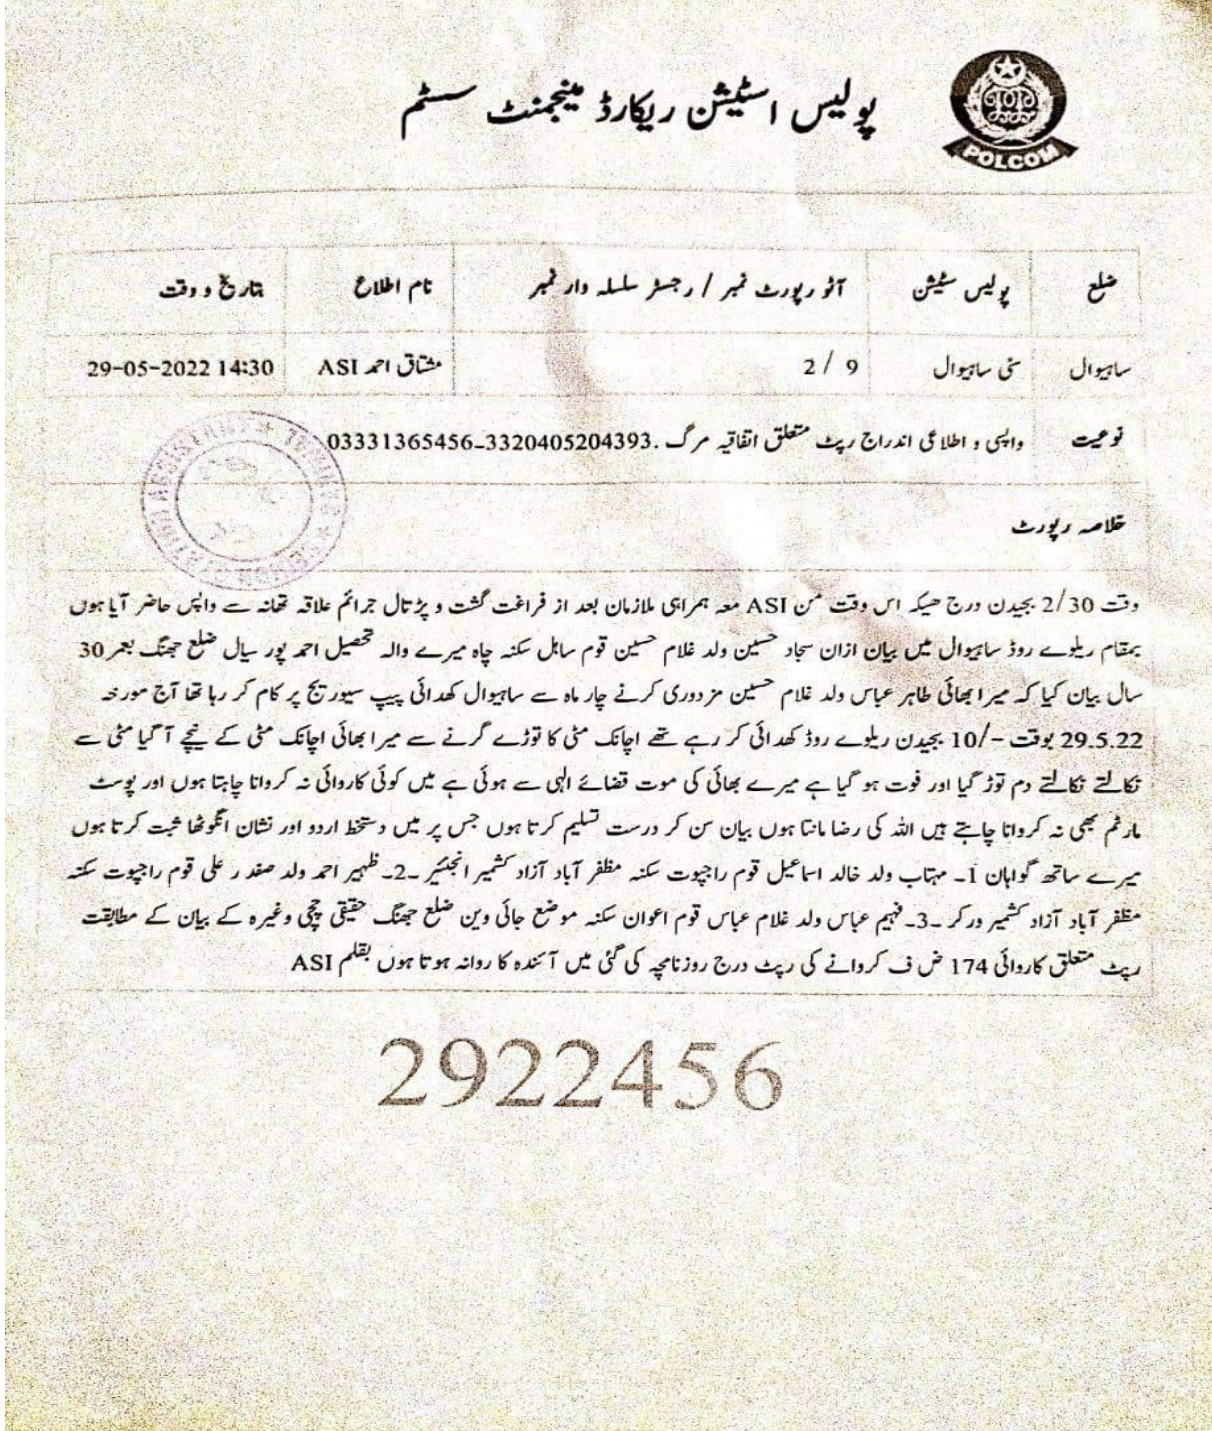 پولیس اسٹیشن ریکارڈ مینجمنٹ سسٹم
POLCOM
ضلع پولیس سٹیشن آٹو رپورٹ نمبر / رجسٹر سلسلہ وار نمبر نام اطلاع تاریخ و وقت
ساہیوال سٹی ساہیوال 9 / 2 مشتاق احمد ASI 29-05-2022 14:30
نوعیت واپسی و اطلاعی اندراج رپٹ متعلق اتفاقیہ مرگ .3320405204393-03331365456
خلاصہ رپورٹ
وقت 2/30 بجیدن درج ھیکہ اس وقت من ASI معہ ہمراہی ملازمان بعد از فراغت گشت و پڑتال جرائم علاقہ تھانہ سے واپس حاضر آیا ہوں
بمقام ریلوے روڈ ساہیوال میں بیان ازان سجاد حسین ولد غلام حسین قوم ساہل سکنہ چاہ میرے والہ تحصیل احمد پور سیال ضلع جھنگ بعمر 30
سال بیان کیا کہ میرا بھائی طاہر عباس ولد غلام حسین مزدوری کرنے چار ماہ سے ساہیوال کھدائی پیپ سیوریج پر کام کر رہا تھا آج مورخہ
29.5.22 بوقت -/10 بجیدن ریلوے روڈ کھدائی کر رہے تھے اچانک مٹی کا توڑے گرنے سے میرا بھائی اچانک مٹی کے نیچے آ گیا مٹی سے
نکالتے نکالتے دم توڑ گیا اور فوت ہو گیا ہے میرے بھائی کی موت قضائے الہی سے ہوئی ہے میں کوئی کاروائی نہ کروانا چاہتا ہوں اور پوسٹ
مارٹم بھی نہ کروانا چاہتے ہیں اللہ کی رضا مانتا ہوں بیان سن کر درست تسلیم کرتا ہوں جس پر میں دستخط اردو اور نشان انگوٹھا ثبت کرتا ہوں
میرے ساتھ گواہان 1۔ مہتاب ولد خالد اسماعیل قوم راجپوت سکنہ مظفر آباد آزاد کشمیر انجنئیر ۔2۔ ظہیر احمد ولد صفدر علی قوم راجپوت سکنہ
مظفر آباد آزاد کشمیر ورکر ۔3۔ فہیم عباس ولد غلام عباس قوم اعوان سکنہ موضع جائی وین ضلع جھنگ حقیقی چچی وغیرہ کے بیان کے مطابقت
رپٹ متعلق کاروائی 174 ض ف کروانے کی رپٹ درج روزنامچہ کی گئی میں آئندہ کا روانہ ہوتا ہوں بقلم ASI
2922456